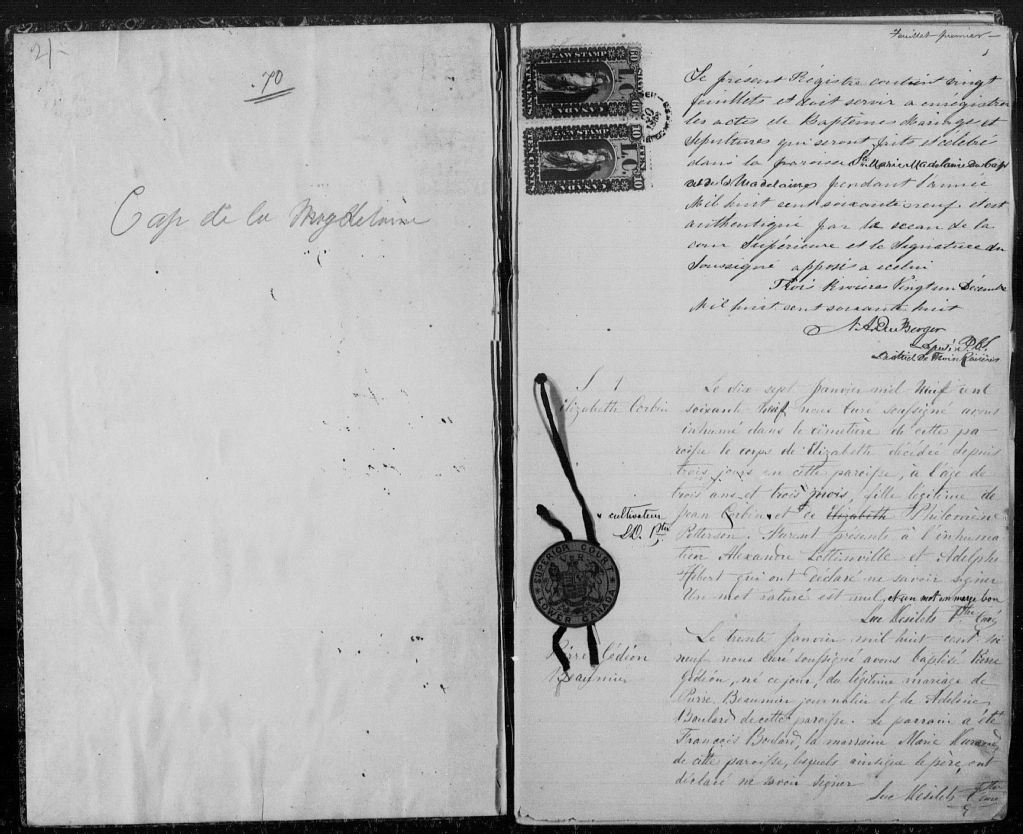 21
70
Cap de la Magdelaine
Feuillet premier
1
LAW STAMP
L.C.
60
CENTS
LAW STAMP
L.C.
10
Le présent Régistre contient vingt
feuillets et doit servir a enregistrer
les actes de Baptêmes Mariages et
Sepultures qui seront faits et célébré
dans la paroisse Ste Marie Madelaine du Cap
de la Madelaine pendant l'année
Mil huit cent soixante neuf et est
authentiqué par le sceau de la
cour Supérieure et la Signature du
Soussigné apposé a icelui
Trois Rivieres Vingt un Décembre
Mil huit cent soixante huit
Député P.C.S.
District de Trois Rivières
S 1
Elizabeth Corbin
Le dix sept Janvier mil huit cent
soixante neuf nous Curé soussigné avons
inhumé dans le cimetière de cette pa-
roisse le corps de Elizabeth décédée depuis
trois jours en cette paroisse, à l'age de
trois ans et trois mois, fille légitime de
Jean Corbin et de Elizabeth Philomène
cultivateur
L.D. Ptre
Petterson. Furent présents à l'inhuma-
tion Alexandre Lottinville et Adolphe
Hébert qui ont déclaré ne savoir signer
Un mot raturé est nul, et un mot en marge bon
Luc Desilets Ptre Curé
SUPERIOR COURT
V R
LOWER CANADA
Pierre Gédéon
Beaumier
Le trente Janvier mil huit cent soi
neuf nous Curé soussigné avons baptisé Pierre
Gédéon, né ce jour, du légitime mariage de
Pierre Beaumier journalier et de Adeline
Boulard de cette paroisse. Le parrain a été
François Boulard, la marraine Marie
de cette paroisse, lesquels ainsi que le père, ont
déclaré ne savoir signer
Luc Desilets Ptre Curé